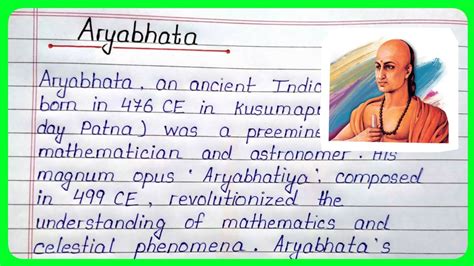 Aryabhata
Aryabhata, an ancient Indic
born in 476 CE in Kusumap
day Patna) was a preemine
mathematician and astronomer. His
magnum opus 'Aryabhatiya', composed
in 499 CE, revolutionized the
understanding of mathematics and
celestial phenomena. Aryabhata's